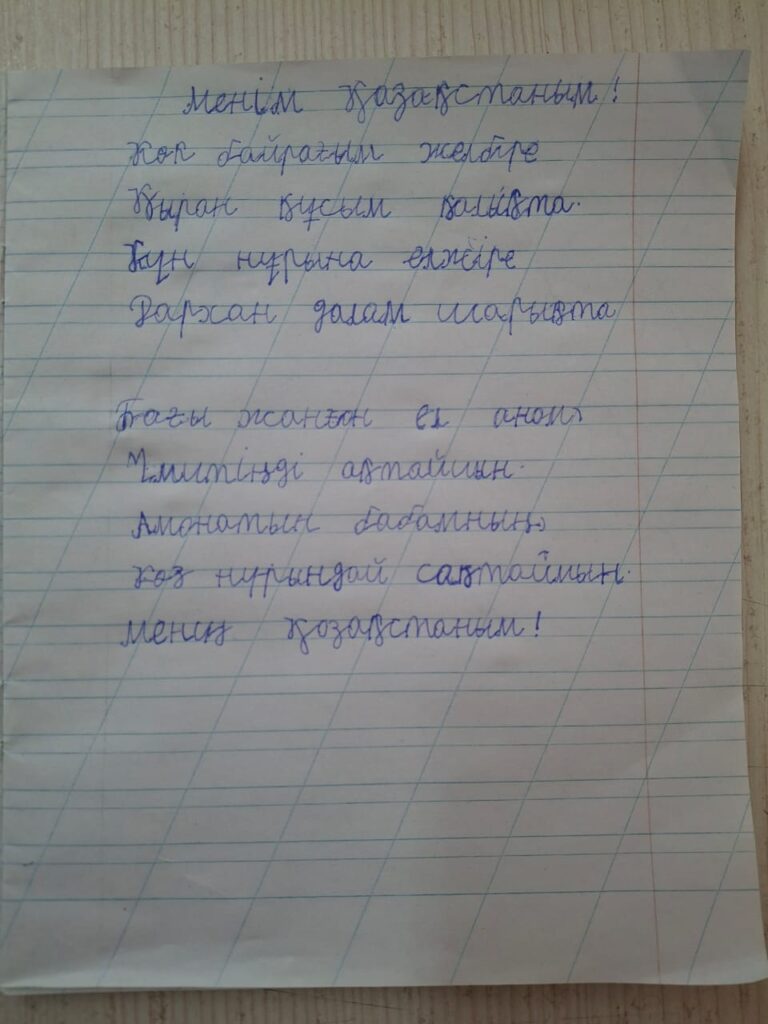 Менім Қазақстаным!
Көк байрағым желбіре
Қыран құсым қалықта.
Күн нұрына елжіре
Дархан далам шарықта
Бағы жанған ел аноп
Үмітіңді ақтаймын.
Аманатын бабамның,
Көз нұрындай сақтаймын.
Менің Қозақстаным!